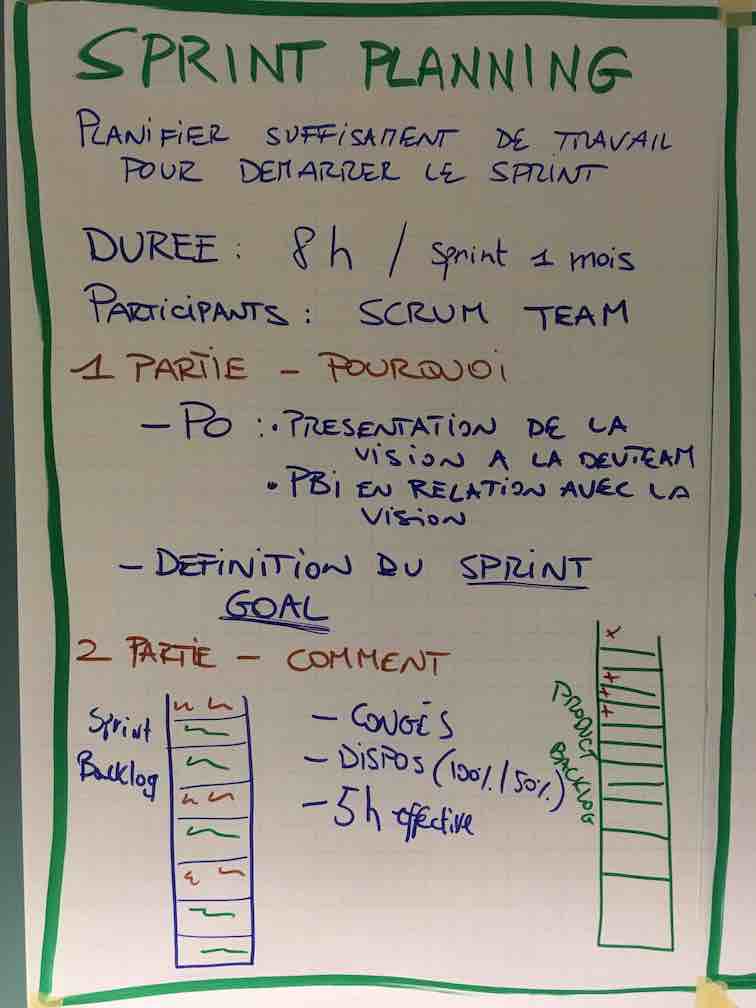 SPRINT PLANNING
PLANIFIER SUFFISAMENT DE TRAVAIL
POUR DEMARRER LE SPRINT
DUREE : 8h / sprint 1 mois
PARTICIPANTS : SCRUM TEAM
1 PARTIE - POURQUOI
- PO : • PRESENTATION DE LA
VISION A LA DEVTEAM
• PBI EN RELATION AVEC LA
VISION
- DEFINITION DU SPRINT
GOAL
2 PARTIE - COMMENT
Sprint
Backlog
- CONGÉS
- DISPOS (100% / 50%)
- 5h effective
PRODUCT
BACKLOG